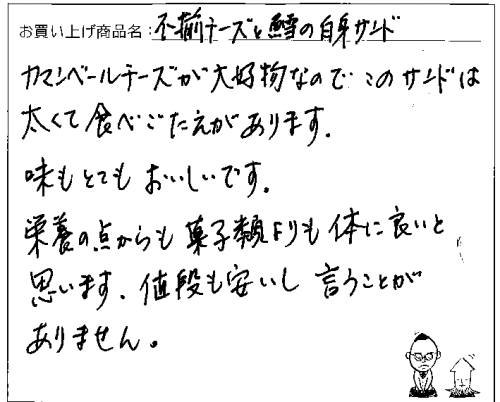 お買い上げ商品名:不揃チーズと鱈の白身サンド
カマンベールチーズが大好物なので このサンドは
太くて食べごたえがあります。
味もとても おいしいです。
栄養の点からも 菓子類よりも 体に良いと
思います。値段も安いし 言うことが
ありません。